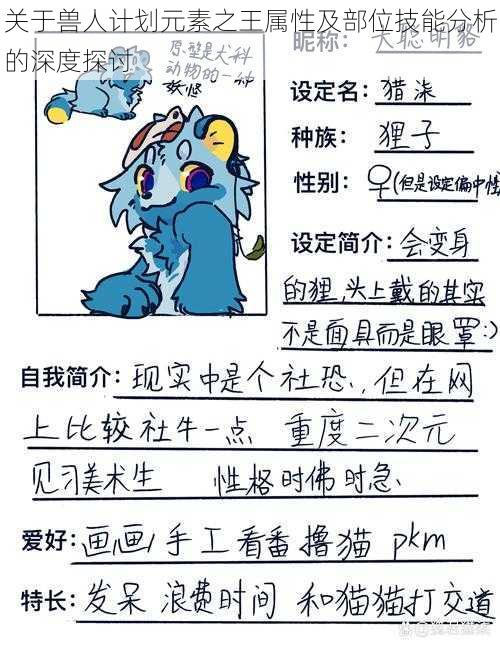 关于兽人计划元素之王属性及部位技能分析
的深度探讨
原型是犬科
动物的一种
妖怪
昵称：大聪明貉
设定名：猎柒
种族：狸子
性别：♀(但是设定偏中性
设定简介：会变身
的狸，头上戴的其实
不是面具而是眼罩:)
自我简介：现实中是个社恐，但在网
上比较社牛一点 重度二次元
见习美术生 性格时佛时急
爱好：画画/手工看番撸猫 pkm
特长：发呆 浪费时间 和猫猫打交道